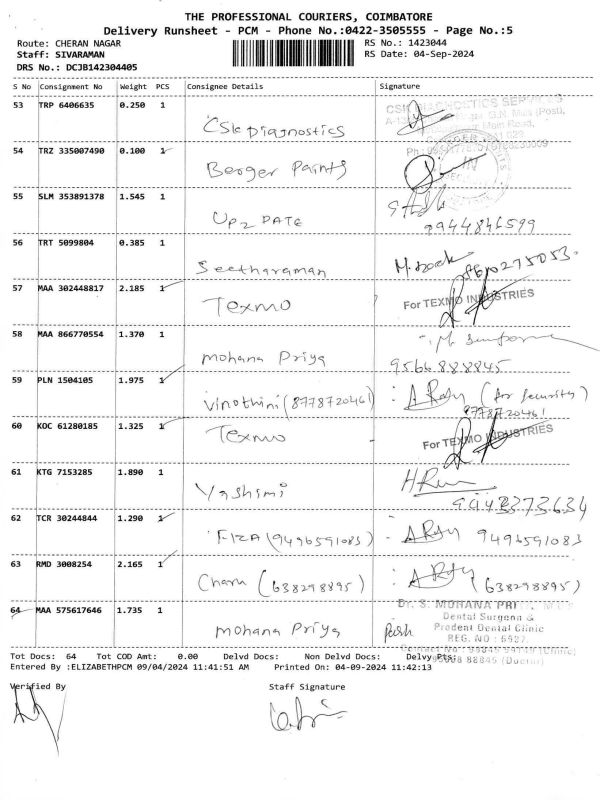 THE PROFESSIONAL COURIERS, COIMBATORE
Delivery Runsheet - PCM - Phone No.:0422-3505555 - Page No.:5
Route: CHERAN NAGAR RS No.: 1423044
Staff: SIVARAMAN RS Date: 04-Sep-2024
DRS No.: DCJB142304405
S No Consignment No Weight PCS Consignee Details Signature
53 TRP 6406635 0.250 1
CSK Diagnostics
CSK DIAGNOSTICS SERVICES
G.N. Mills (Post),
Main Road,
54 TRZ 335007490 0.100 1
Berger Paints
55 SLM 353891378 1.545 1
UP2DATE 9944846599
56 TRT 5099804 0.385 1
Seetharaman 8610275053
57 MAA 302448817 2.185 1
Texmo For TEXMO INDUSTRIES
58 MAA 866770554 1.370 1
Mohana Priya 9566888845
59 PLN 1504105 1.975 1
Vinothini (8778720461) (for security)
8778720461
60 KOC 61280185 1.325 1
Texmo For TEXMO INDUSTRIES
61 KTG 7153285 1.890 1
Yashimi 9443373634
62 TCR 30244844 1.290 1
FIZA (9496591083) 9496591083
63 RMD 3008254 2.165 1
Charu (638298895) (638298895)
64 MAA 575617646 1.735 1
Mohana Priya
Dr. S. MOHANA PRIYA
Dental Surgeon &
Prodent Dental Clinic
REG. NO : 6927
Tot Docs: 64 Tot COD Amt: 0.00 Delvd Docs: Non Delvd Docs: Delvy Pts:
95668 88845 (Doctor)
Entered By :ELIZABETHPCM 09/04/2024 11:41:51 AM Printed On: 04-09-2024 11:42:13
Verified By Staff Signature